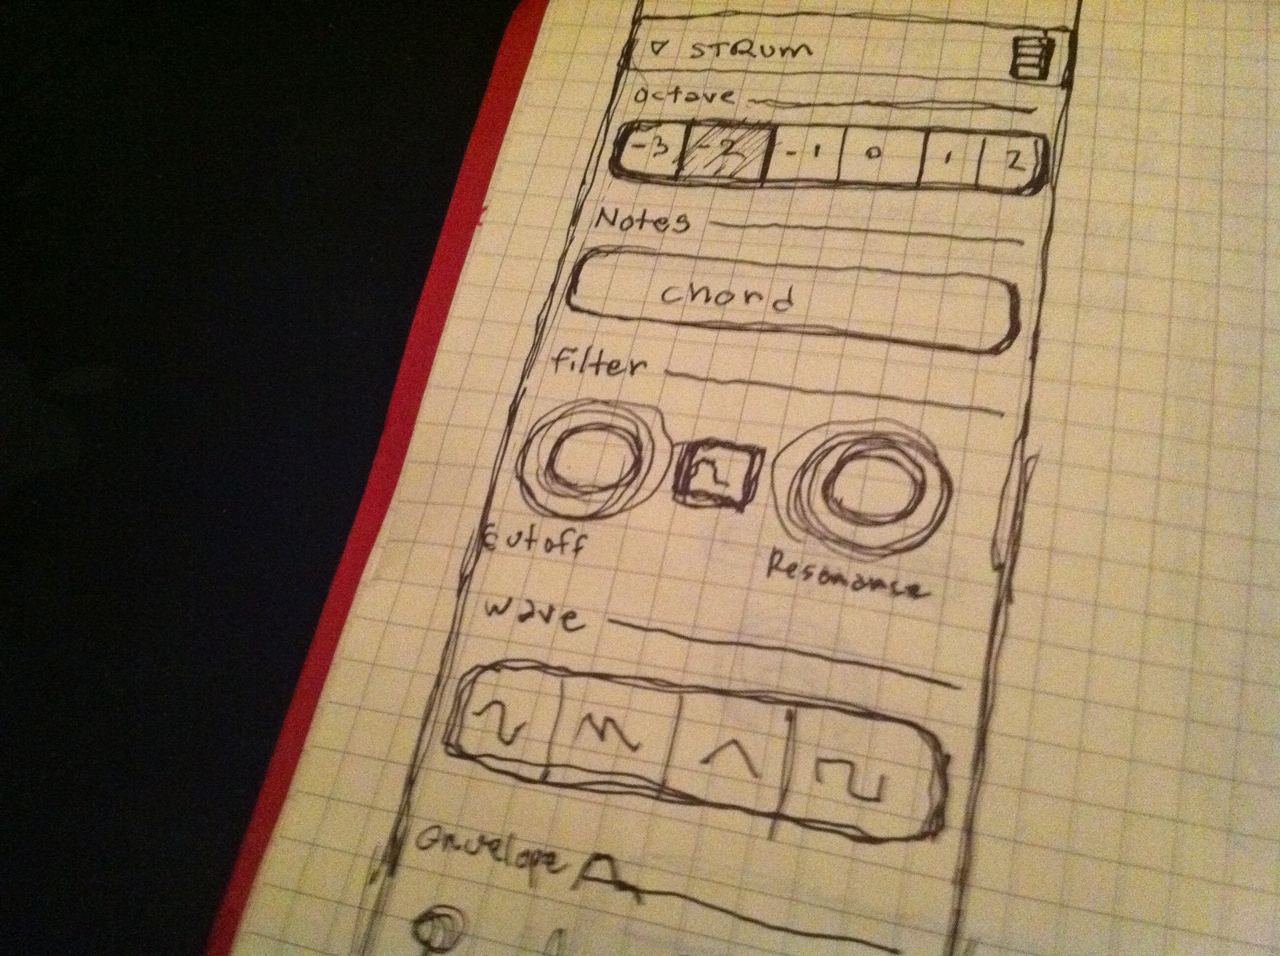 STRUM
octave
-3 -2 -1 0 1 2
Notes
chord
filter
Cutoff
Resonance
wave
Envelope